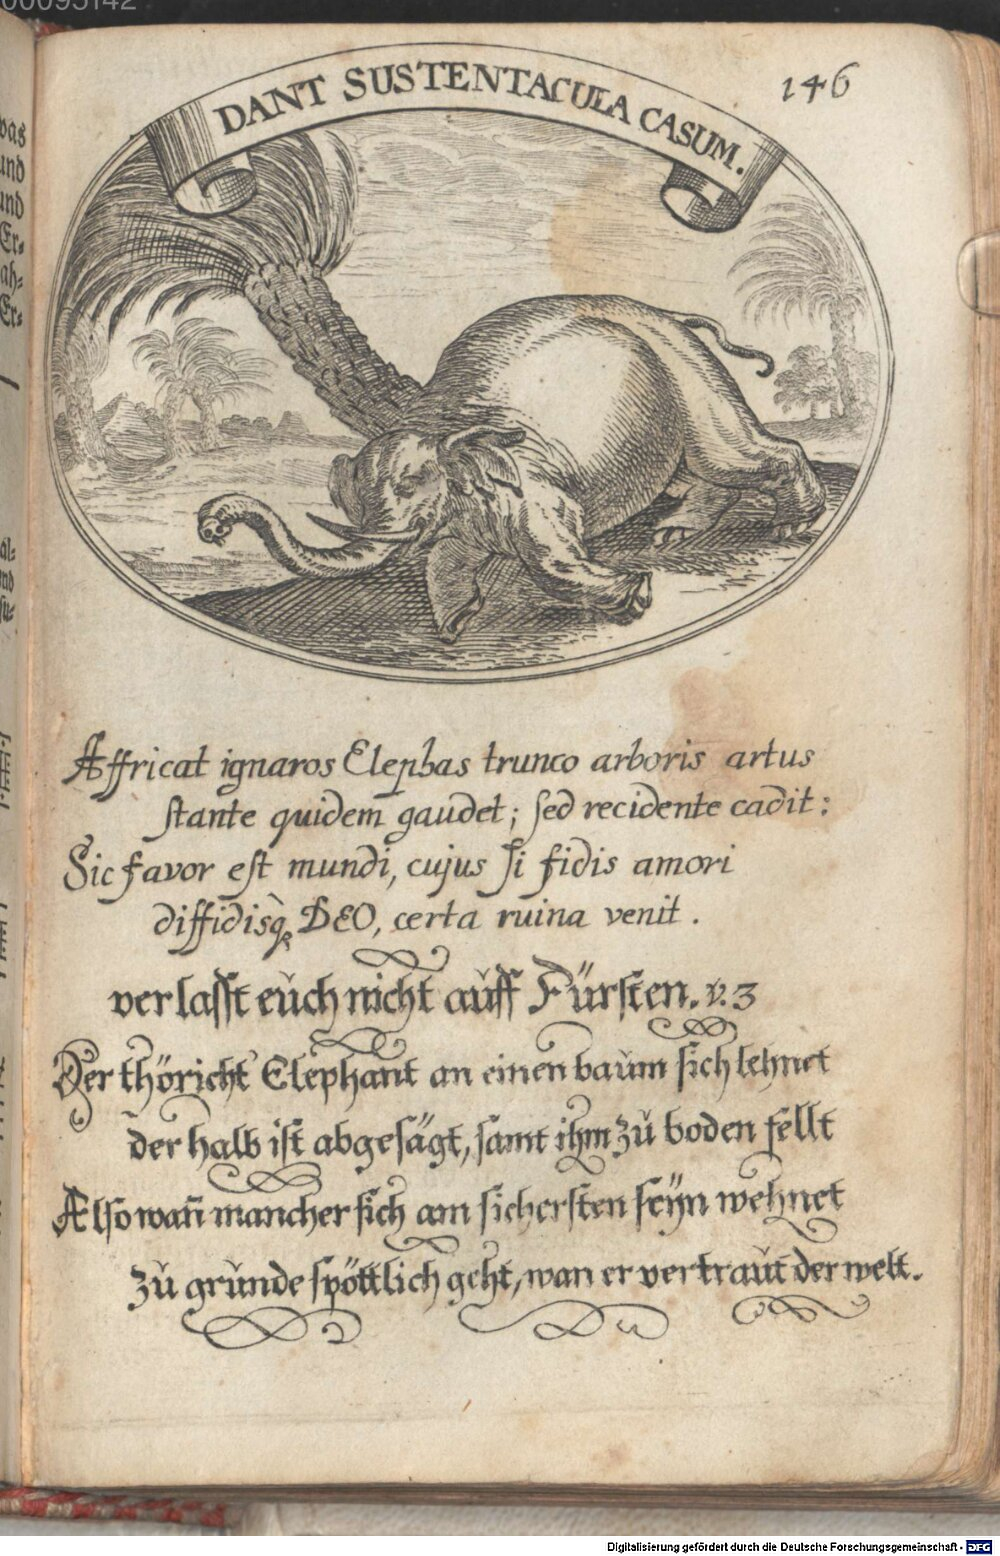 00095142
146
DANT SUSTENTACULA CASUM.
Affricat ignaros Elephas trunco arboris artus
stante quidem gaudet; sed recidente cadit:
Sic favor est mundi, cujus si fidis amori
diffidisq̀ꝫ DEO, certa ruina venit.
verlasst euch nicht auff Fürsten. v. 3
Der thöricht Elephant an einen baum sich lehnet
der halb ist abgesägt, samt ihm zu boden fellt
Also wañ mancher sich am sichersten seÿn wehnet
zu grunde spöttlich geht, wan er vertraut der welt.
vas
und
und
Er-
ah-
Er-
Digitalisierung gefördert durch die Deutsche Forschungsgemeinschaft - DFG